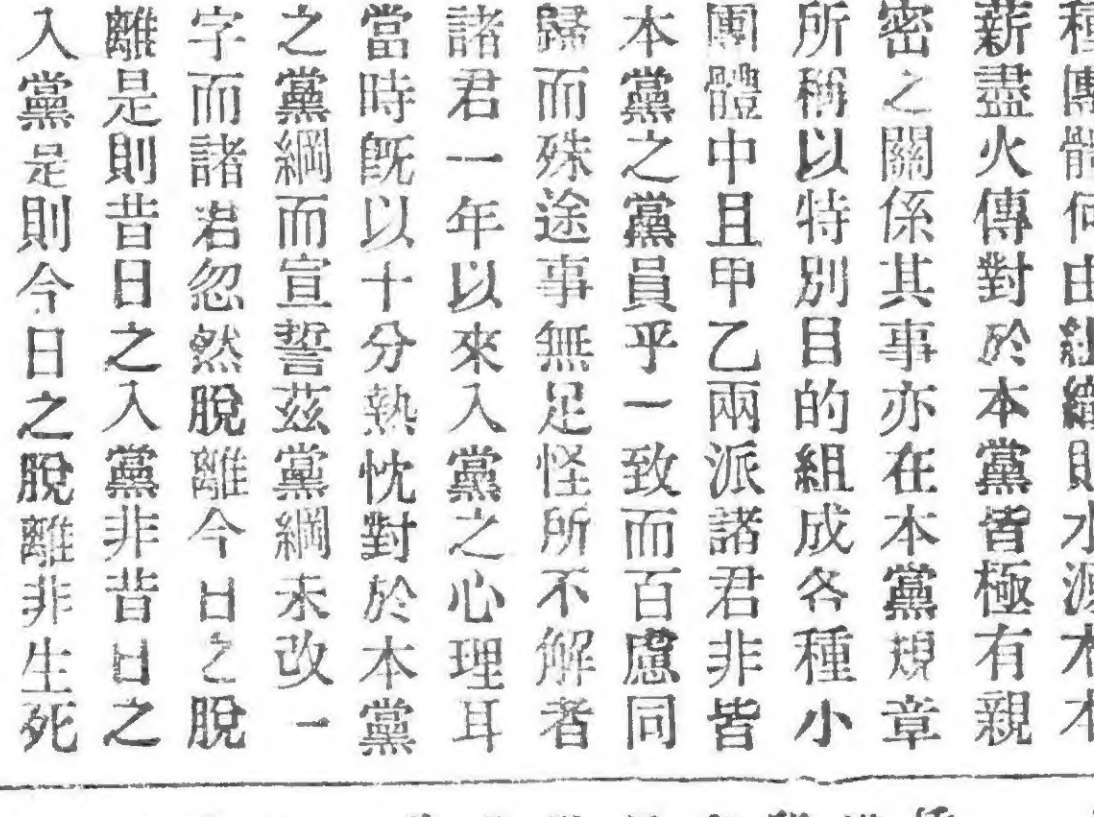 種團體何由組織則水源木本
薪盡火傳對於本黨皆極有親
密之關係其事亦在本黨規章
所稱以特別目的組成各種小
團體中且甲乙兩派諸君非皆
本黨之黨員乎一致而百慮同
歸而殊途事無足怪所不解者
諸君一年以來入黨之心理耳
當時旣以十分熱忱對於本黨
之黨綱而宣誓茲黨綱未改一
字而諸君忽然脫離今日之脫
離是則昔日之入黨非昔日之
入黨是則今日之脫離非生死